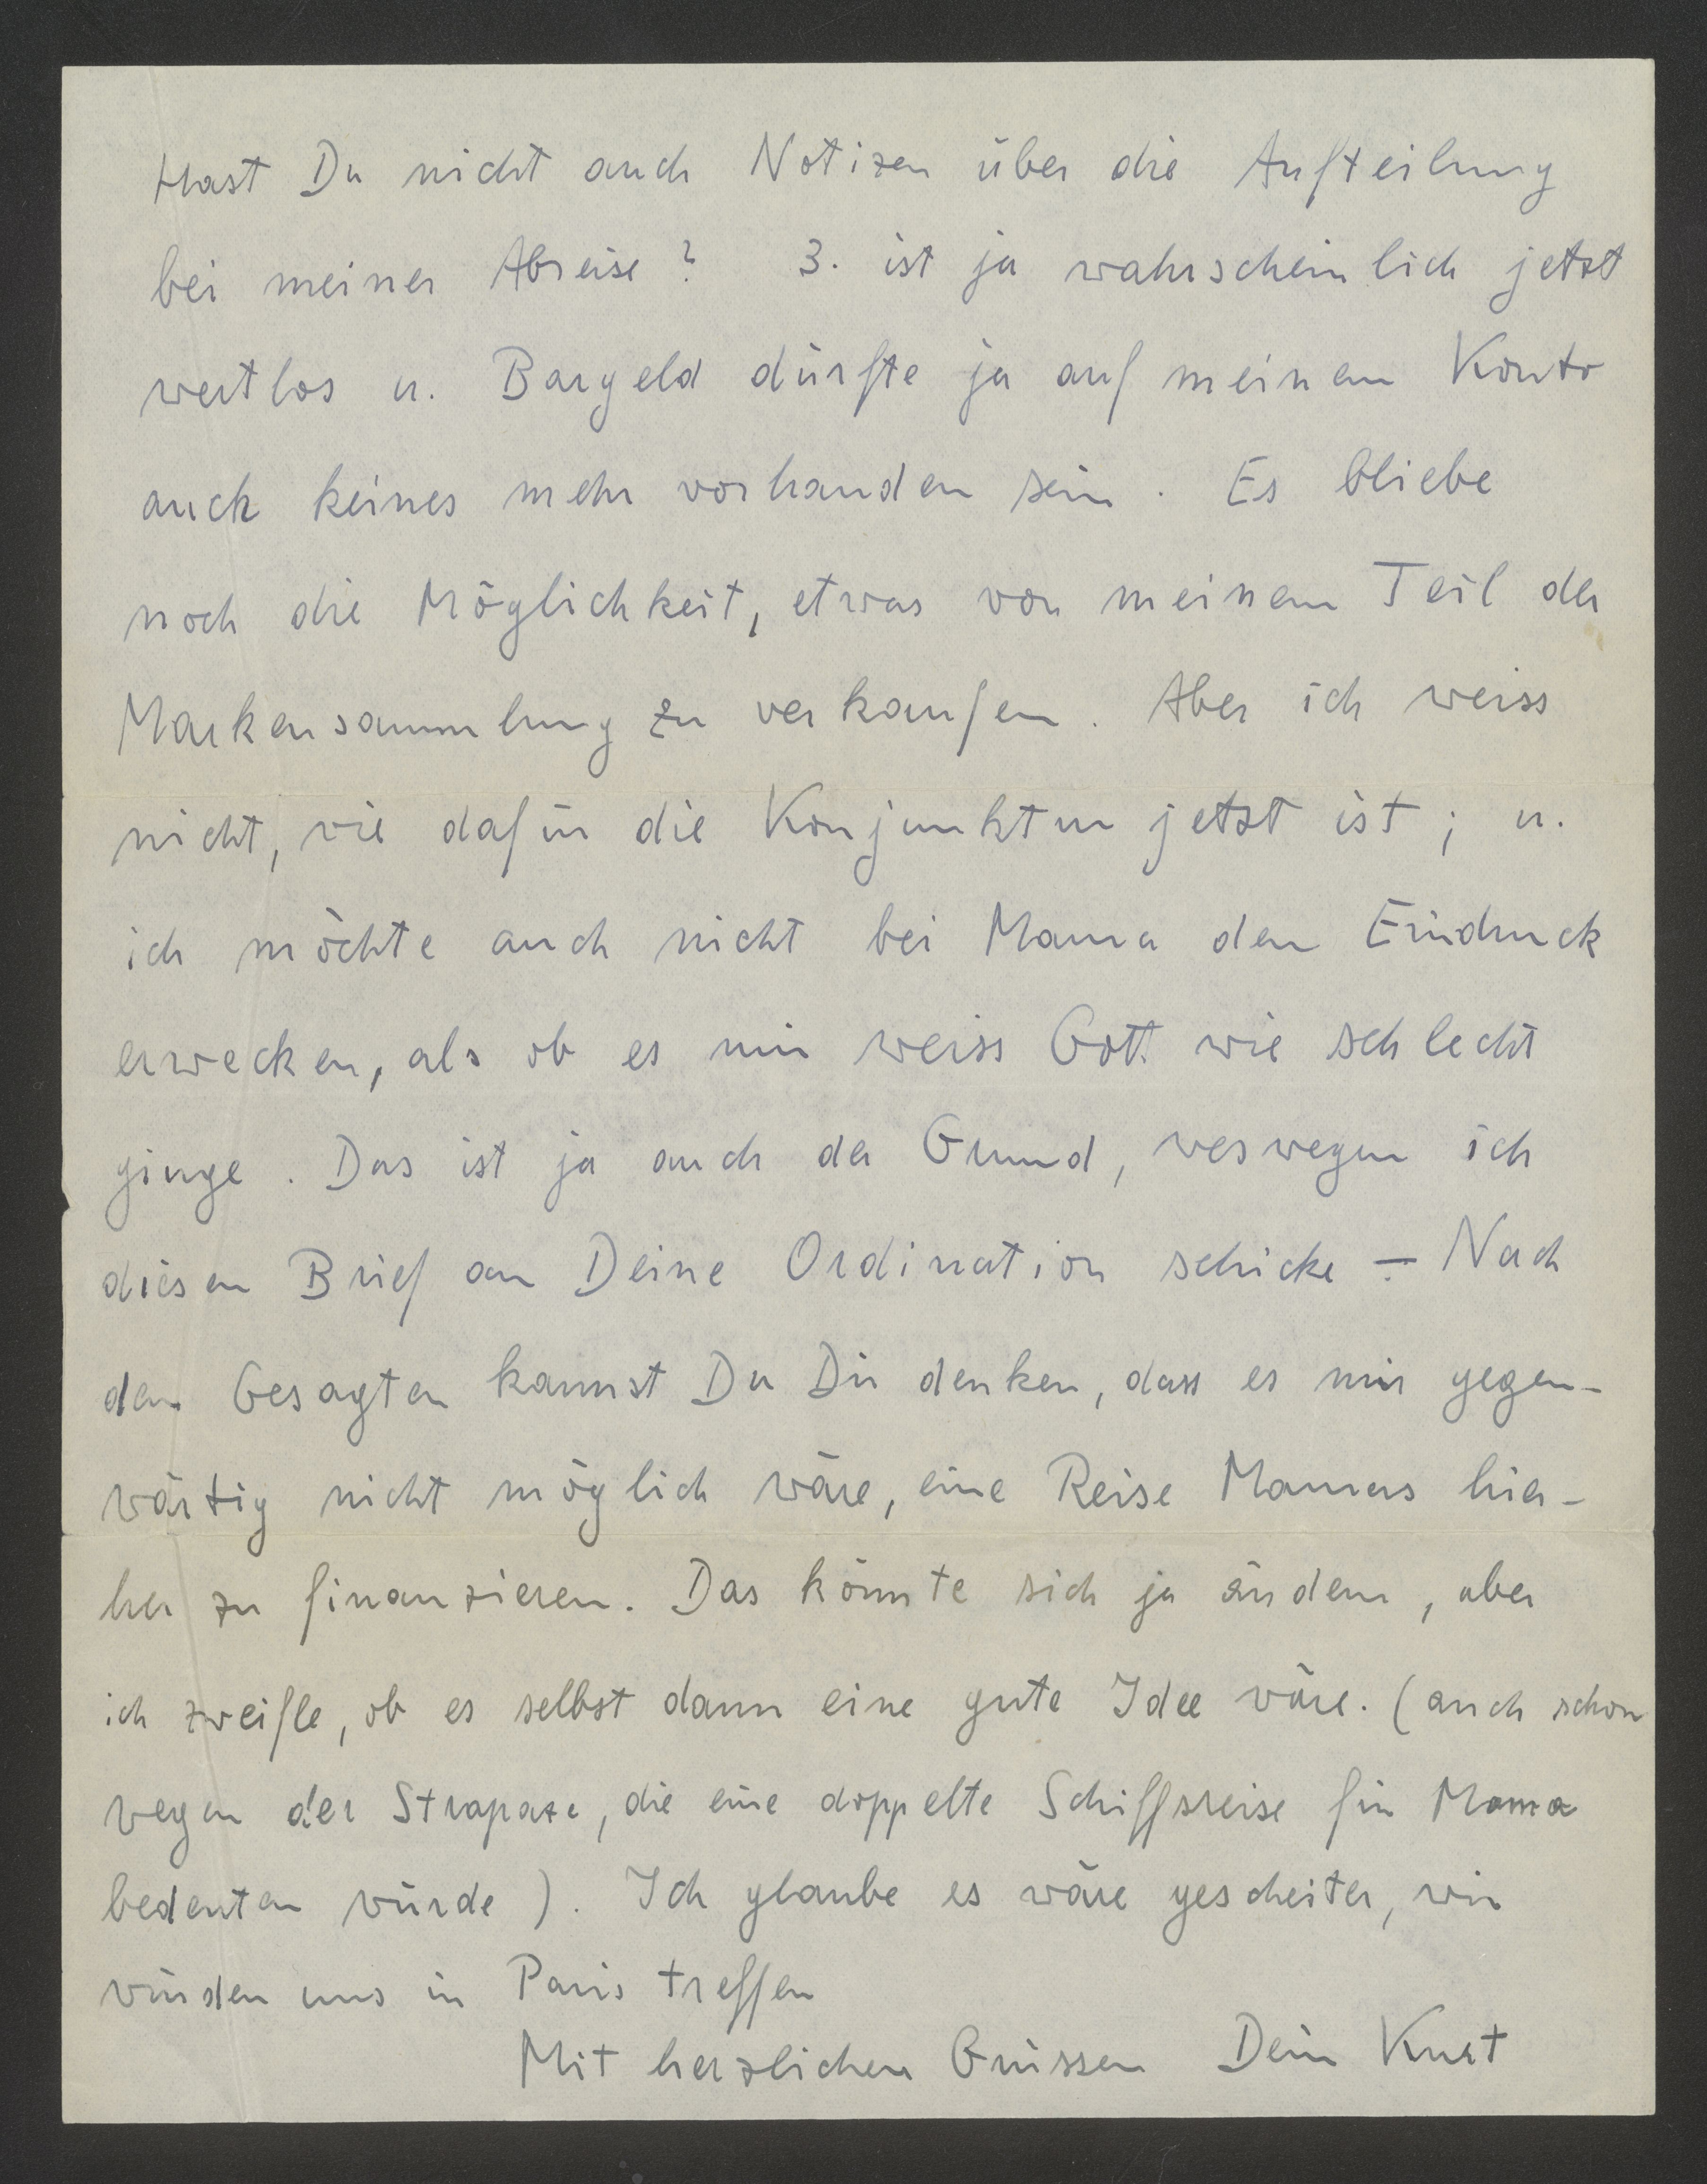 Hast Du nicht auch Notizen über die Aufteilung
bei meiner Abreise? 3. ist ja wahrscheinlich jetzt
wertlos u. Bargeld dürfte ja auf meinem Konto
auch keines mehr vorhanden sein. Es bliebe
noch die Möglichkeit, etwas von meinem Teil der
Markensammlung zu verkaufen. Aber ich weiss
nicht, wie dafür die Konjunktur jetzt ist; u.
ich möchte auch nicht bei Mama den Eindruck
erwecken, als ob es mir weiss Gott wie schlecht
ginge. Das ist ja auch der Grund, weswegen ich
diesen Brief an Deine Ordination schicke. – Nach
dem Gesagten kannst Du Dir denken, dass es mir gegen-
wärtig nicht möglich wäre, eine Reise Mamas hier-
her zu finanzieren. Das könnte sich ja ändern, aber
ich zweifle, ob es selbst dann eine gute Idee wäre. (auch schon
wegen der Strapaze, die eine doppelte Schiffsreise für Mama
bedeuten würde). Ich glaube es wäre gescheiter, wir
würden uns in Paris treffen
Mit herzlichen Grüssen Dein Kurt